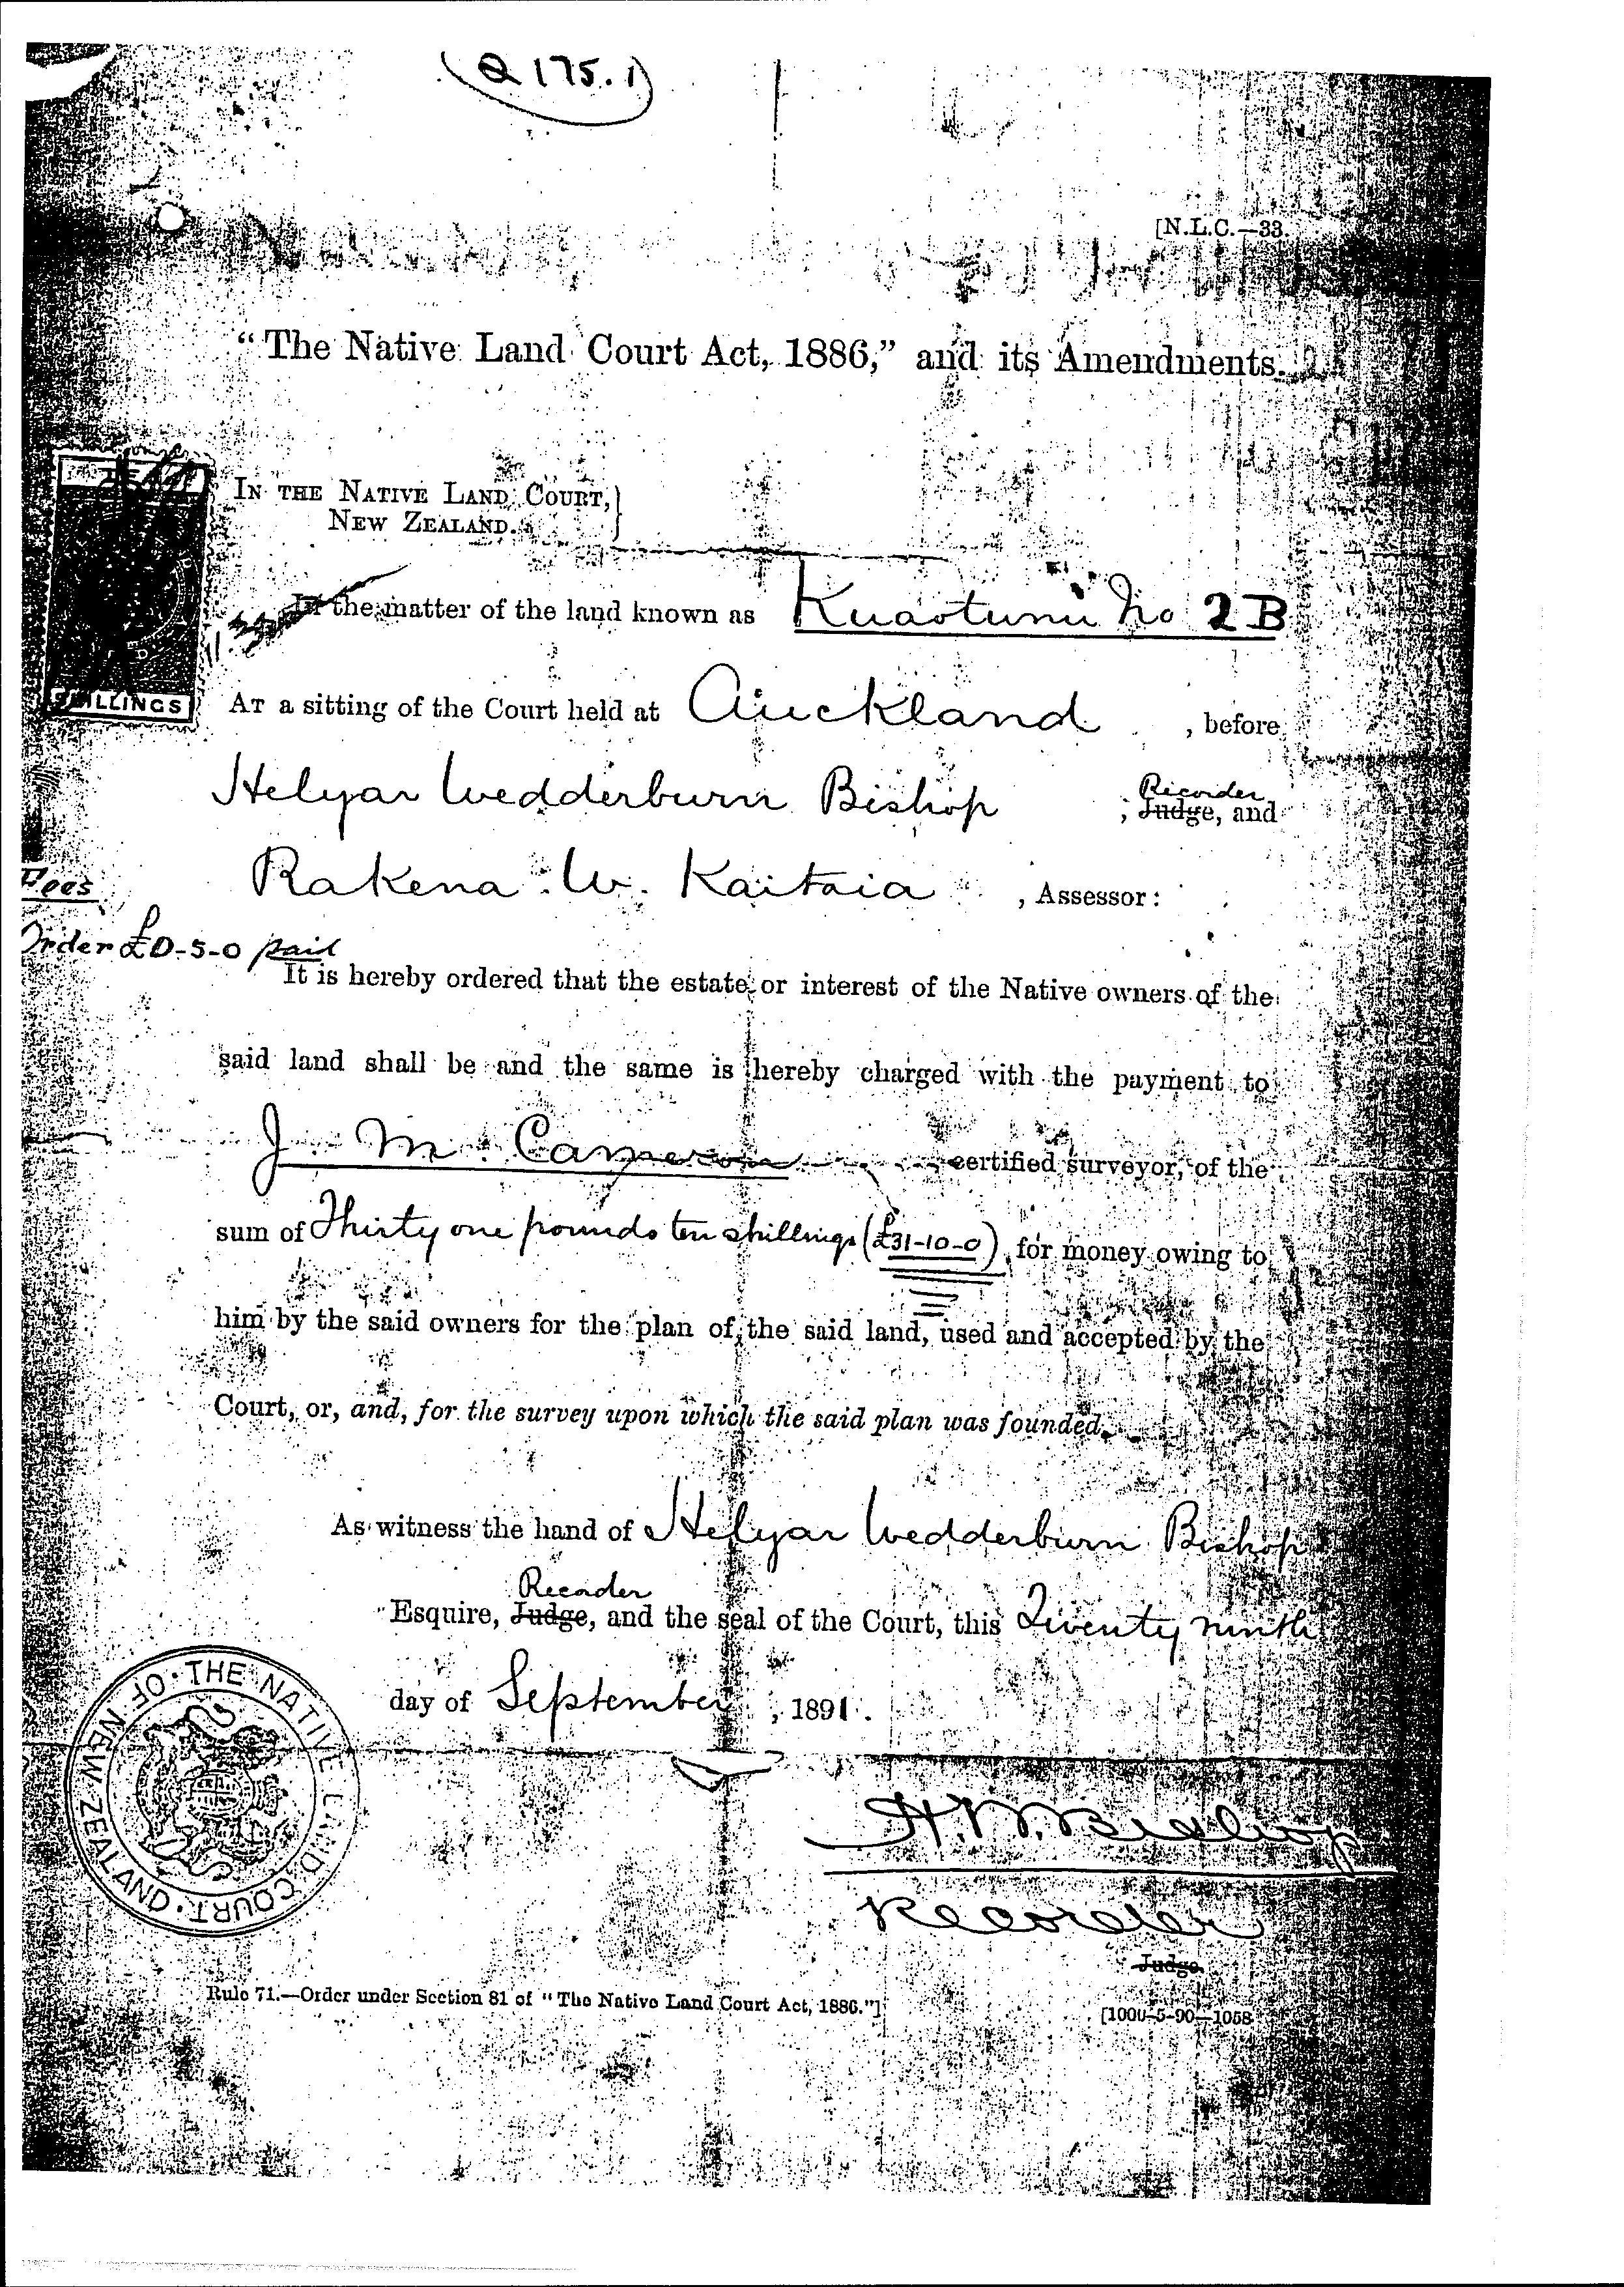 (Q 175.1)
[N.L.C.—33.
“The Native Land Court Act, 1886,” and its Amendments.
IN THE NATIVE LAND COURT,
NEW ZEALAND.
In the matter of the land known as Kuaotunu No 2B
SHILLINGS
AT a sitting of the Court held at Auckland, before
Helyar Wedderburn Bishop
Recorder
, Judge, and
Rakena W. Kaitaia, Assessor:
Fees
Order £0-5-0 paid
It is hereby ordered that the estate or interest of the Native owners of the
said land shall be and the same is hereby charged with the payment to
J. M. Cameron certified surveyor, of the
sum of Thirty one pounds ten shillings (£31-10-0), for money owing to
him by the said owners for the plan of the said land, used and accepted by the
Court, or, and, for the survey upon which the said plan was founded.
As witness the hand of Helyar Wedderburn Bishop
Recorder
Esquire, Judge, and the seal of the Court, this Twenty ninth
day of September, 1891.
· THE NATIVE LAND COURT · OF NEW ZEALAND
H.W. Bishop
Recorder
Judge.
Rule 71.—Order under Section 81 of “The Native Land Court Act, 1886.”]
[1000-5-90—1058